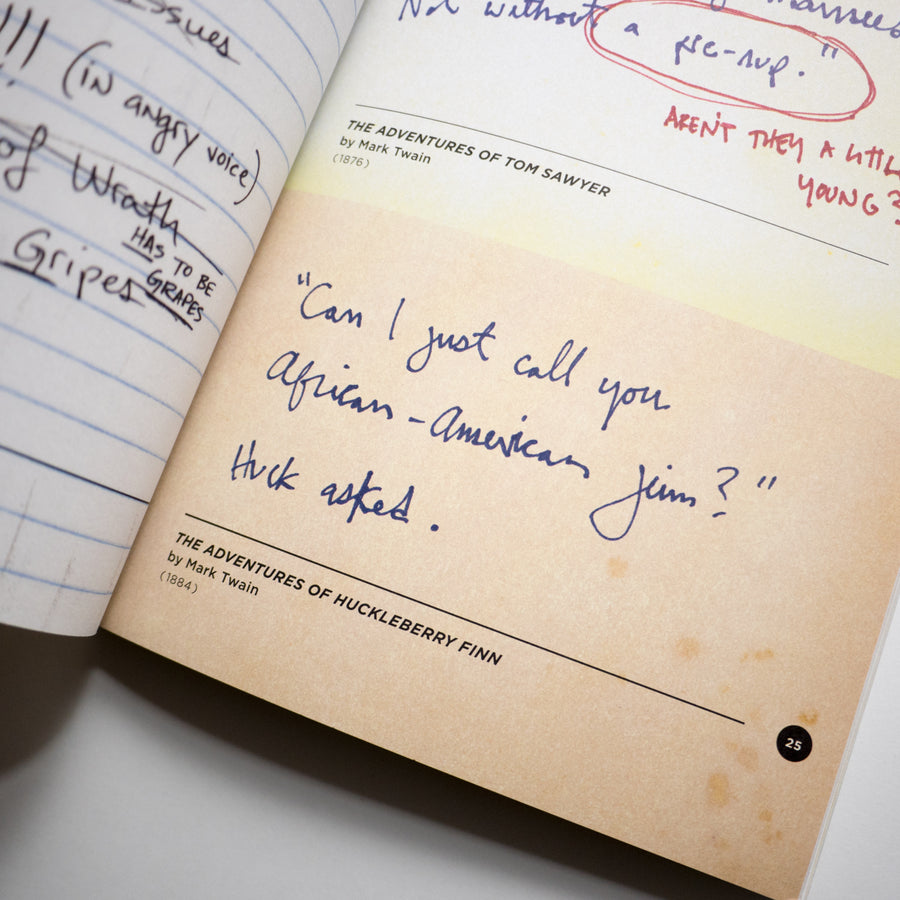 Issues
!!! (in angry voice)
of Wrath
HAS TO BE
GRAPES
Gripes
married
Not without a pre-nup."
AREN'T THEY A LITTLE
YOUNG?
THE ADVENTURES OF TOM SAWYER
by Mark Twain
(1876)
"Can I just call you
African-American Jim?"
Huck asked.
THE ADVENTURES OF HUCKLEBERRY FINN
by Mark Twain
(1884)
25